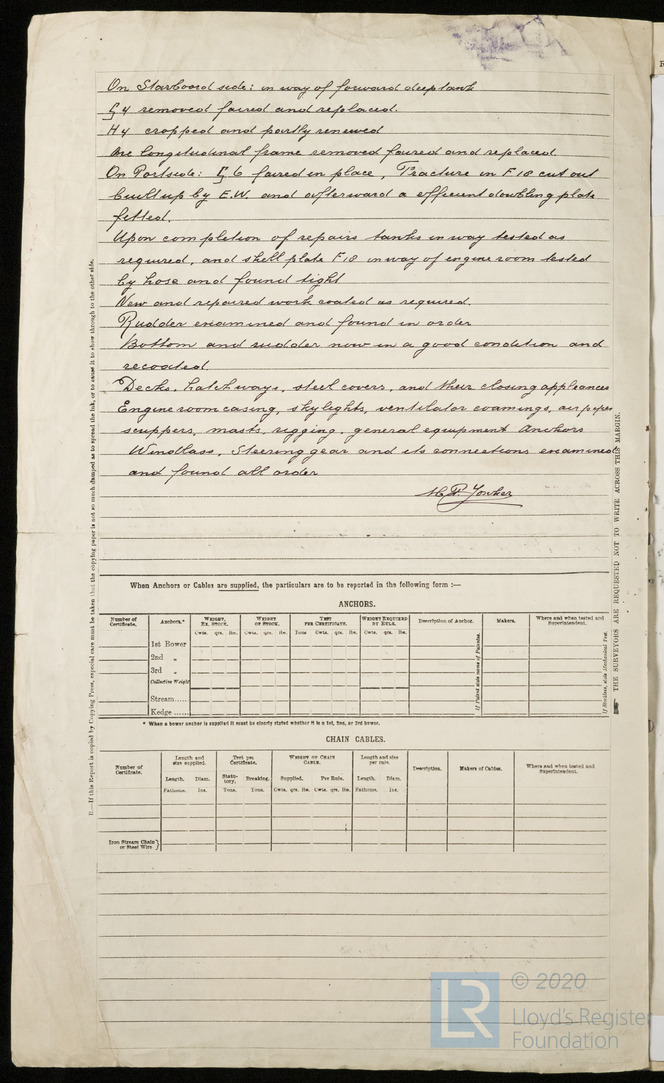 On Starboard side: in way of forward deeptank
G 4 removed faired and replaced.
H 4 cropped and partly renewed
One longitudinal frame removed faired and replaced
On Portside: G 6 faired in place, Fracture in F 18 cut out
built up by E.W. and afterward a efficient doubling plate
fitted.
Upon completion of repairs tanks in way tested as
required, and shell plate F 18 in way of engine room tested
by hose and found tight
New and repaired work coated as required.
Rudder examined and found in order
Bottom and rudder now in a good condition and
recoated.
Decks, hatchways, steel covers, and their closing appliances
Engine room casing, skylights, ventilator coamings, air pipes
scuppers, masts, rigging, general equipment Anchors
Windlass, Steering gear and its connections examined
and found all order
When Anchors or Cables are supplied, the particulars are to be reported in the following form :—
ANCHORS.
Number of Certificate. Anchors.* WEIGHT, EX. STOCK. WEIGHT OF STOCK. TEST PER CERTIFICATE. WEIGHT REQUIRED BY RULE. Description of Anchor. Makers. Where and when tested and Superintendent.
Cwts. qrs. lbs. Cwts. qrs. lbs. Tons Cwts. qrs. lbs. Cwts. qrs. lbs.
1st Bower
2nd „
3rd „
Collective Weight
Stream.....
Kedge ......
* When a bower anchor is supplied it must be clearly stated whether it is a 1st, 2nd, or 3rd bower.
CHAIN CABLES.
Number of Certificate. Length and size supplied. Test per Certificate. WEIGHT OF CHAIN CABLE. Length and size per rule. Description. Makers of Cables. Where and when tested and Superintendent.
Length. Diam. Statutory. Breaking. Supplied. Per Rule. Length. Diam.
Fathoms. Ins. Tons. Tons. Cwts. qrs. lbs. Cwts. qrs. lbs. Fathoms. Ins.
Iron Stream Chain or Steel Wire }
B.—If this Report is copied by Copying Press, especial care must be taken that the copying paper is not so much damped as to spread the ink, or to cause it to show through to the other side.
THE SURVEYORS ARE REQUESTED NOT TO WRITE ACROSS THIS MARGIN.
LR
© 2020
Lloyd's Register
Foundation